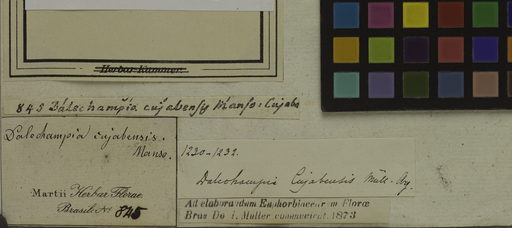 Herbar. Kummer.
845 Dalechampia cujabensis Manso: Cujaba
Dalechampia cujabensis.
Manso.
Martii Herbar. Florae
Brasil. No 845
1230-1232.
Dalechampia Cujabensis Müll. Arg.
Ad elaborandum Euphorbiacear in Florae
Bras Dº i. Müller communicat. 1873